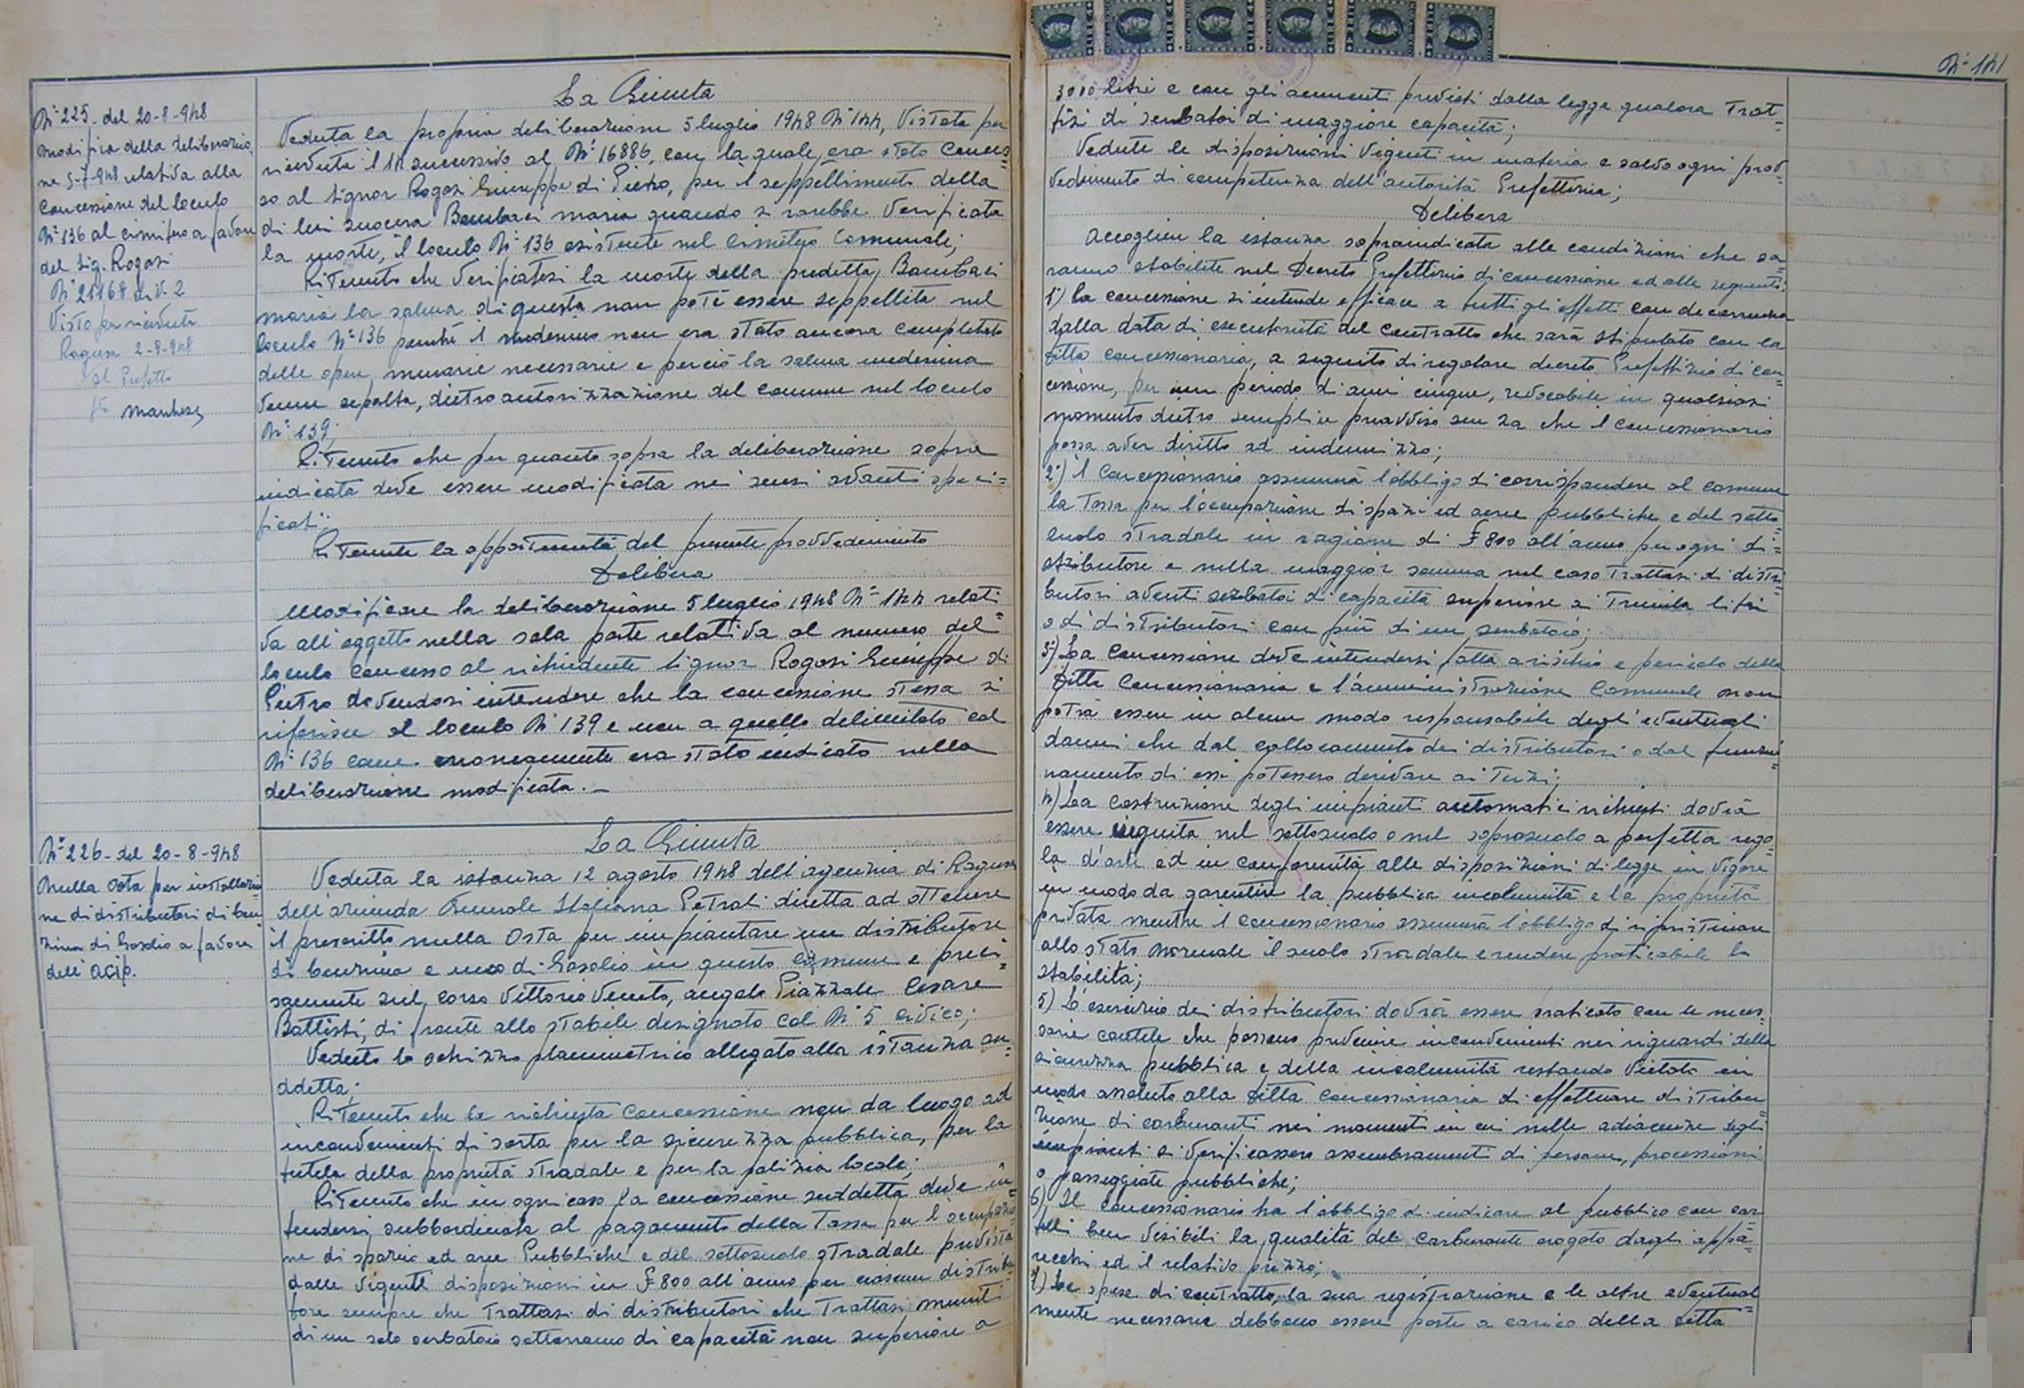 N° 225 - del 20-8-948
modifica della deliberazio
ne 5-7-948 relativa alla
Concessione del loculo
N° 136 al cimitero a favore
del Sig. Rogasi
N° 21168 div. 2
Visto per ricevuta
Ragusa 2-9-948
Il Prefetto
La Giunta
Veduta la propria deliberazione 5 luglio 1948 N° 144, Vistata per
ricevuta il 14 successivo al N° 16886, con la quale era stato conces=
so al Signor Rogasi Giuseppe di Pietro, per il seppellimento della
di lui suocera Bambaci maria quando si sarebbe Verificata
la morte, il loculo N° 136 esistente nel Cimitero Comunale;
Ritenuto che Verificatasi la morte della predetta Bambaci
maria la salma di questa non poté essere seppellita nel
loculo N° 136 perché il medesimo non era stato ancora completato
delle opere murarie necessarie e perciò la salma medesima
Venne sepolta, dietro autorizzazione del comune nel loculo
N° 139;
Ritenuto che per quanto sopra la deliberazione sopra
indicata deve essere modificata nei sensi avanti speci=
ficati;
Ritenuta la opportunità del presente provvedimento
Delibera
Modificare la deliberazione 5 luglio 1948 N° 144 relati=
va all'oggetto nella sola parte relativa al numero del
loculo concesso al richiedente Signor Rogasi Giuseppe di
Pietro dovendosi intendere che la concessione stessa si
riferisce al loculo N° 139 e non a quello delimitato col
N° 136 come erroneamente era stato indicato nella
deliberazione modificata. -
N° 226 - del 20-8-948
Nulla Osta per installazio
ne di distributori di ben
zina di Gasolio a favore
dell'ACIP.
La Giunta
Veduta la istanza 12 agosto 1948 dell'agenzia di Ragusa
dell'azienda Generale Italiana Petroli diretta ad ottenere
il prescritto nulla Osta per impiantare un distributore
di benzina e uno di Gasolio in questo Comune e preci=
samente sul corso Vittorio Veneto, angolo Piazzale Cesare
Battisti, di fronte allo stabile designato col N° 5 civico;
Veduto lo schizzo planimetrico allegato alla istanza su=
ddetta;
Ritenuto che la richiesta concessione non da luogo ad
inconvenienti di sorta per la sicurezza pubblica, per la
tutela della proprietà stradale e per la polizia locale;
Ritenuto che in ogni caso la concessione suddetta deve in=
tendersi subbordinata al pagamento della Tassa per l'occupazio=
ne di spazio ed aree Pubbliche e del sottosuolo stradale prevista
dalle Vigenti disposizioni in £ 800 all'anno per ciascun distribu=
tore sempre che Trattasi di distributori che Trattasi muniti
di un solo serbatoio sotterraneo di capacità non superiore a
N° 141
3000 litri e con gli aumenti previsti dalla legge qualora Trat=
tisi di serbatoi di maggiore capacità;
Vedute le disposizioni Vigenti in materia e salvo ogni prov=
vedimento di competenza dell'autorità Prefettizia;
Delibera
Accogliere la istanza sopraindicata alle condizioni che sa=
ranno stabilite nel Decreto Prefettizio di concessione ed alle seguenti:
1°) La concessione si intende efficace a tutti gli effetti con decorrenza
dalla data di esecutorietà del contratto che sarà stipulato con la
ditta concessionaria, a seguito di regolare decreto Prefettizio di con=
cessione, per un periodo di anni cinque, revocabile in qualsiasi
momento dietro semplice preavviso senza che il concessionario
possa aver diritto ad indennizzo;
2°) Il Concessionario assumerà l'obbligo di corrispondere al comune
la Tassa per l'occupazione di spazi ed aree pubbliche e del sotto=
suolo stradale in ragione di £ 800 all'anno per ogni di=
stributore e nella maggior somma nel caso Trattasi di distri=
butori aventi serbatoi di capacità superiore ai Tremila litri
o di distributori con più di un serbatoio;
3°) La Concessione deve intendersi fatta a rischio e pericolo della
ditta Concessionaria e l'amministrazione Comunale non
potrà essere in alcun modo responsabile degli eventuali
danni che dal collocamento dei distributori o dal funzio=
namento di essi potessero derivare ai Terzi;
4) La costruzione degli impianti automatici richiesti dovrà
essere eseguita nel sottosuolo o nel soprasuolo a perfetta rego=
la d'arte ed in conformità alle disposizioni di legge in Vigore
in modo da garentire la pubblica incolumità e la proprietà
privata mentre il concessionario assumerà l'obbligo di ripristinare
allo stato normale il suolo stradale e rendere praticabile la
stabilità;
5) L'esercizio dei distributori dovrà essere praticato con le neces=
sarie cautele che possano prevenire inconvenienti nei riguardi della
sicurezza pubblica e della incolumità restando Vietato in
modo assoluto alla ditta concessionaria di effettuare distribu=
zione di carburanti nei momenti in cui nelle adiacenze degli
impianti si Verificassero assembramenti di persone, processioni
o passeggiate pubbliche;
6) Il Concessionario ha l'obbligo di indicare al pubblico con car=
telli ben Visibili la qualità del Carburante erogato dagli appa=
recchi ed il relativo prezzo;
7) Le spese di contratto, la sua registrazione e le altre eventual=
mente necessarie debbono essere poste a carico della ditta